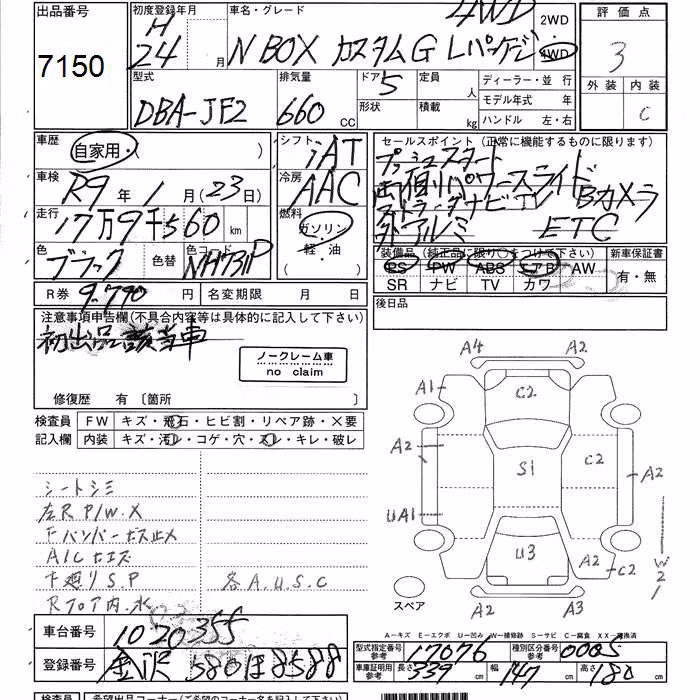 出品番号
7150
初度登録年月
H
24 月
車名・グレード
4WD
N BOX カスタムG Lパッケージ
2WD
4WD
評価点
3
外装 内装
C
型式
DBA-JF2
排気量
660 CC
ドア 5
形状
定員 人
積載 kg
ディーラー・並行
モデル年式 年
ハンドル 左・右
車歴
自家用・( )
シフト
iAT
セールスポイント (正常に機能するものに限ります)
プッシュスタート
両側パワースライド
Bカメラ
外アルミ ETC
車検
R9年 1月(23日)
冷房
AAC
走行
17万9千560 km
燃料
ガソリン
軽・油
色
ブラック
色替
色コード
NH731P
装備品 (純正品に限り○をつけて下さい)
PS PW ABS エアB AW
SR ナビ TV カワ
新車保証書
有・無
R券 9.790 円
名変期限 月 日
後日品
注意事項申告欄(不具合内容等は具体的に記入して下さい)
初出品該当車
ノークレーム車
no claim
修復歴 有 〔箇所 〕
検査員
記入欄
FW キズ・飛石・ヒビ割・リペア跡・X要
内装 キズ・汚レ・コゲ・穴・スレ・キレ・破レ
シートシミ
左R P/W.X
FバンパービスルX
A/C ヒエズ
下廻りS.P
各A.U.S.C
Rフロア内.水
A4 A2
A1 C2
A2 S1 C2 A2
UA1 U3 A2 C2
W2
A2 A3
スペア
A―キズ E―エクボ U―凹み W―補修跡 S―サビ C―腐食 XX―交換済
車台番号
1020355
登録番号
金沢 580 ほ 8588
型式指定番号
参考
17076
種別区分番号
参考
0005
車庫証明用
参考
長さ 339 cm
幅 147 cm
高さ 180 cm
検査員
希望出品コーナー(ご希望のコーナー名を記入して下さい)